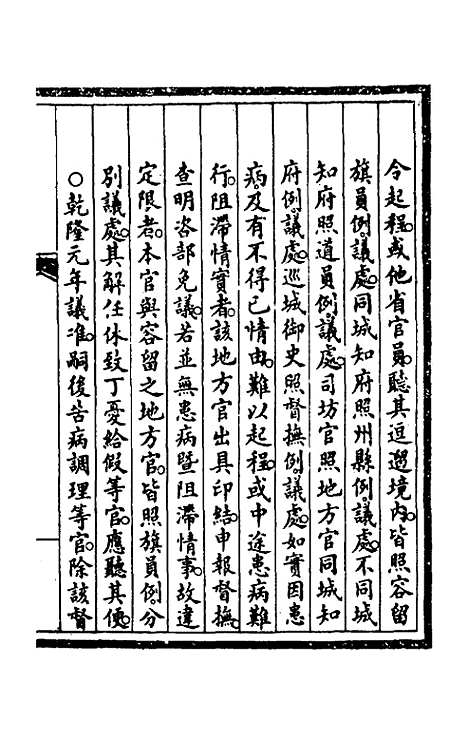 令起程。或他省官員。聽其逗遛境內。皆照容留
旗員例。議處。同城知府照州縣例。議處。不同城
知府照道員例。議處。司坊官照地方官同城知
府例。議處。巡城御史照督撫例。議處。如實因患
病。及有不得已情由。難以起程。或中途患病難
行。阻滯情實者。該地方官出具印結。申報督撫
查明咨部免議。若並無患病暨阻滯情事。故違
定限者。本官與容留之地方官。皆照旗員例分
別議處。其解任休致丁憂給假等官。應聽其便。
○乾隆元年議准。嗣後告病調理等官。除該督